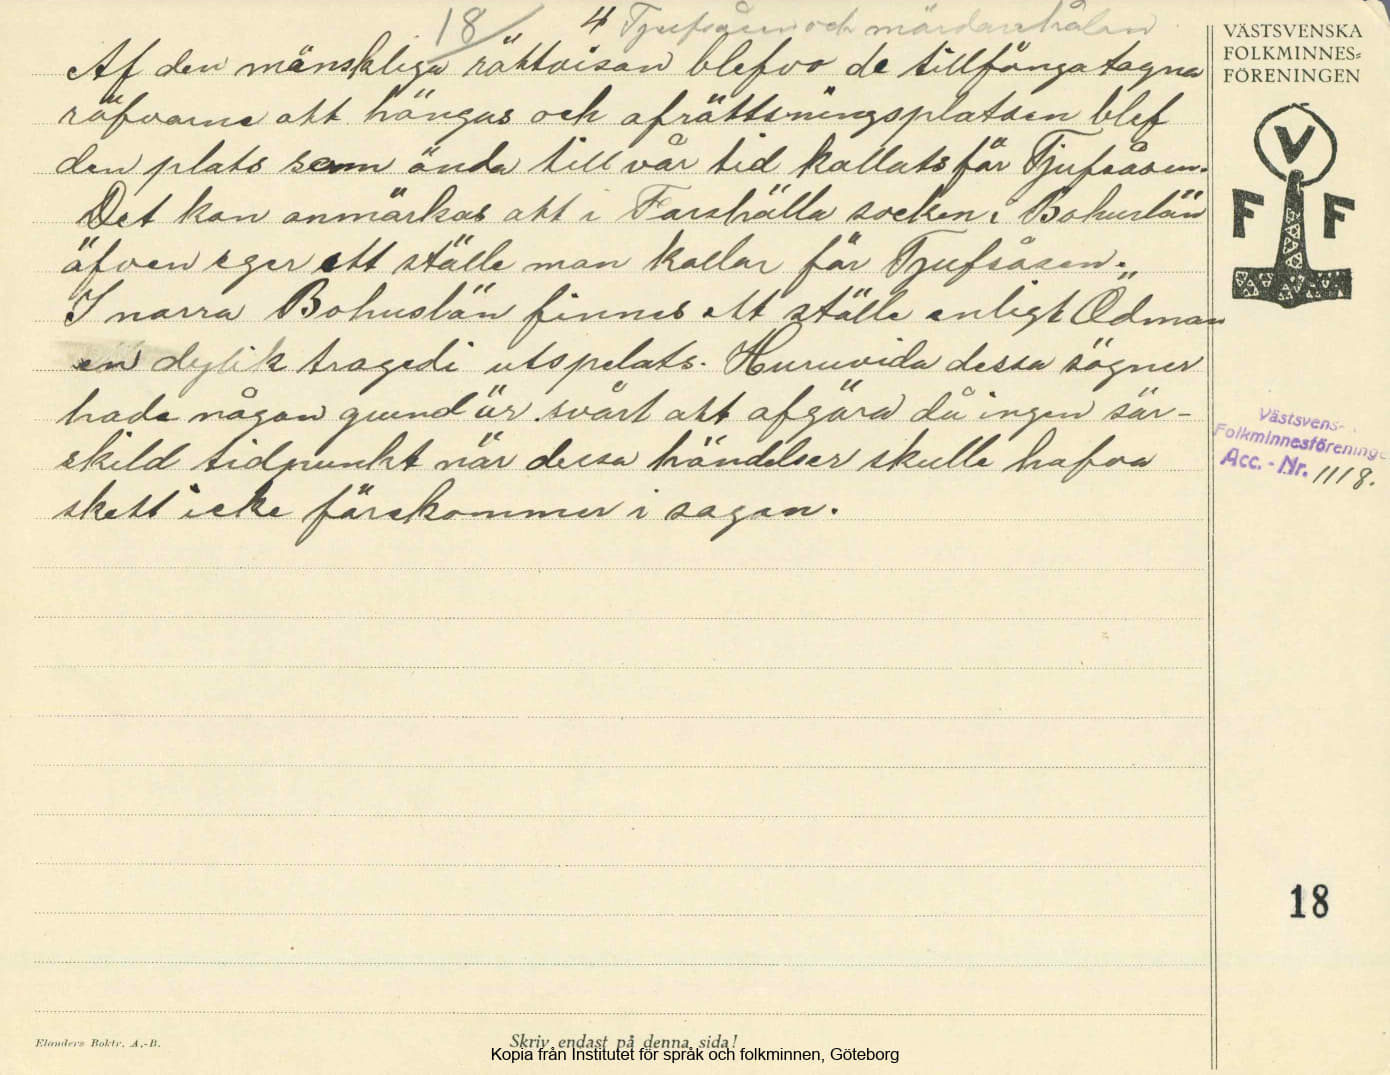 18 4 Tjufsåsen och mördarehålan
VÄSTSVENSKA
FOLKMINNES=
FÖRENINGEN
V
F F
Af den mänskliga rättvisan blefvo de tillfångatagna
röfvarne att hängas och afrättsningsplatsen blef
den plats som ända till vår tid kallats för Tjufsåsen.
Det kan anmärkas att i Forshälla socken i Bohuslän
äfven eger ett ställe man kallar för Tjufsåsen.
I norra Bohuslän finnes ett ställe enligt Ödman
en dylik tragedi utspelats. Huruvida dessa sägner
hade någon grund är svårt att afgöra då ingen sär-
skild tidpunkt när dessa händelser skulle hafva
skett icke förekommer i sagan.
Västsvens-
Folkminnesförening
Acc. - Nr. 1118.
18
Elanders Boktr. A.-B.
Skriv endast på denna sida!
Kopia från Institutet för språk och folkminnen, Göteborg